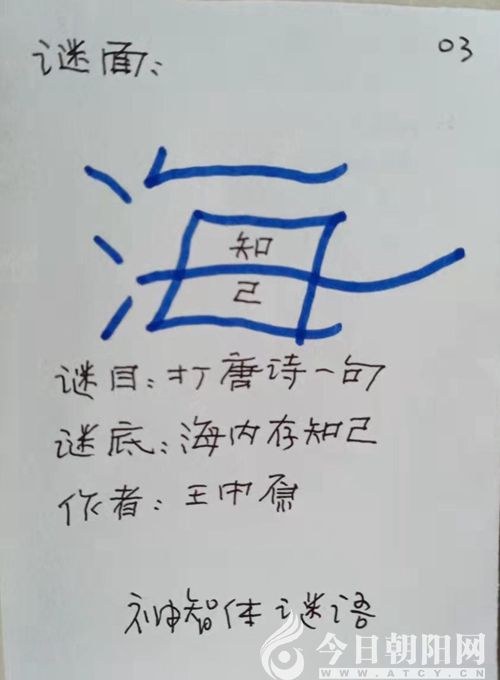 谜面：
03
海
知
己
谜目：打唐诗一句
谜底：海内存知己
作者：王中原
神智体谜语
今日朝阳网
WWW.ATCY.CN